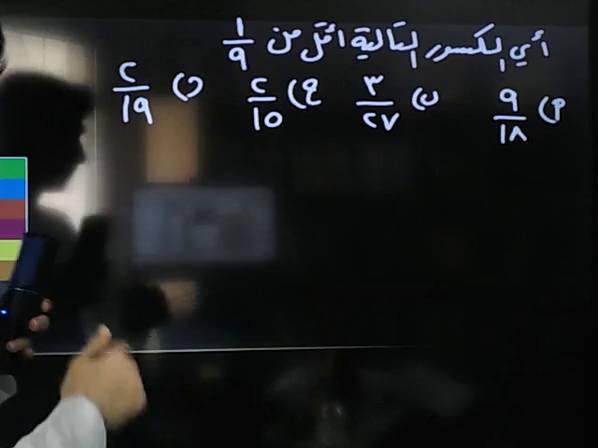 أي الكسور التالية أقل من ١/٩
أ) ٩/١٨ ب) ٣/٢٧ ج) ٢/١٥ د) ٢/١٩